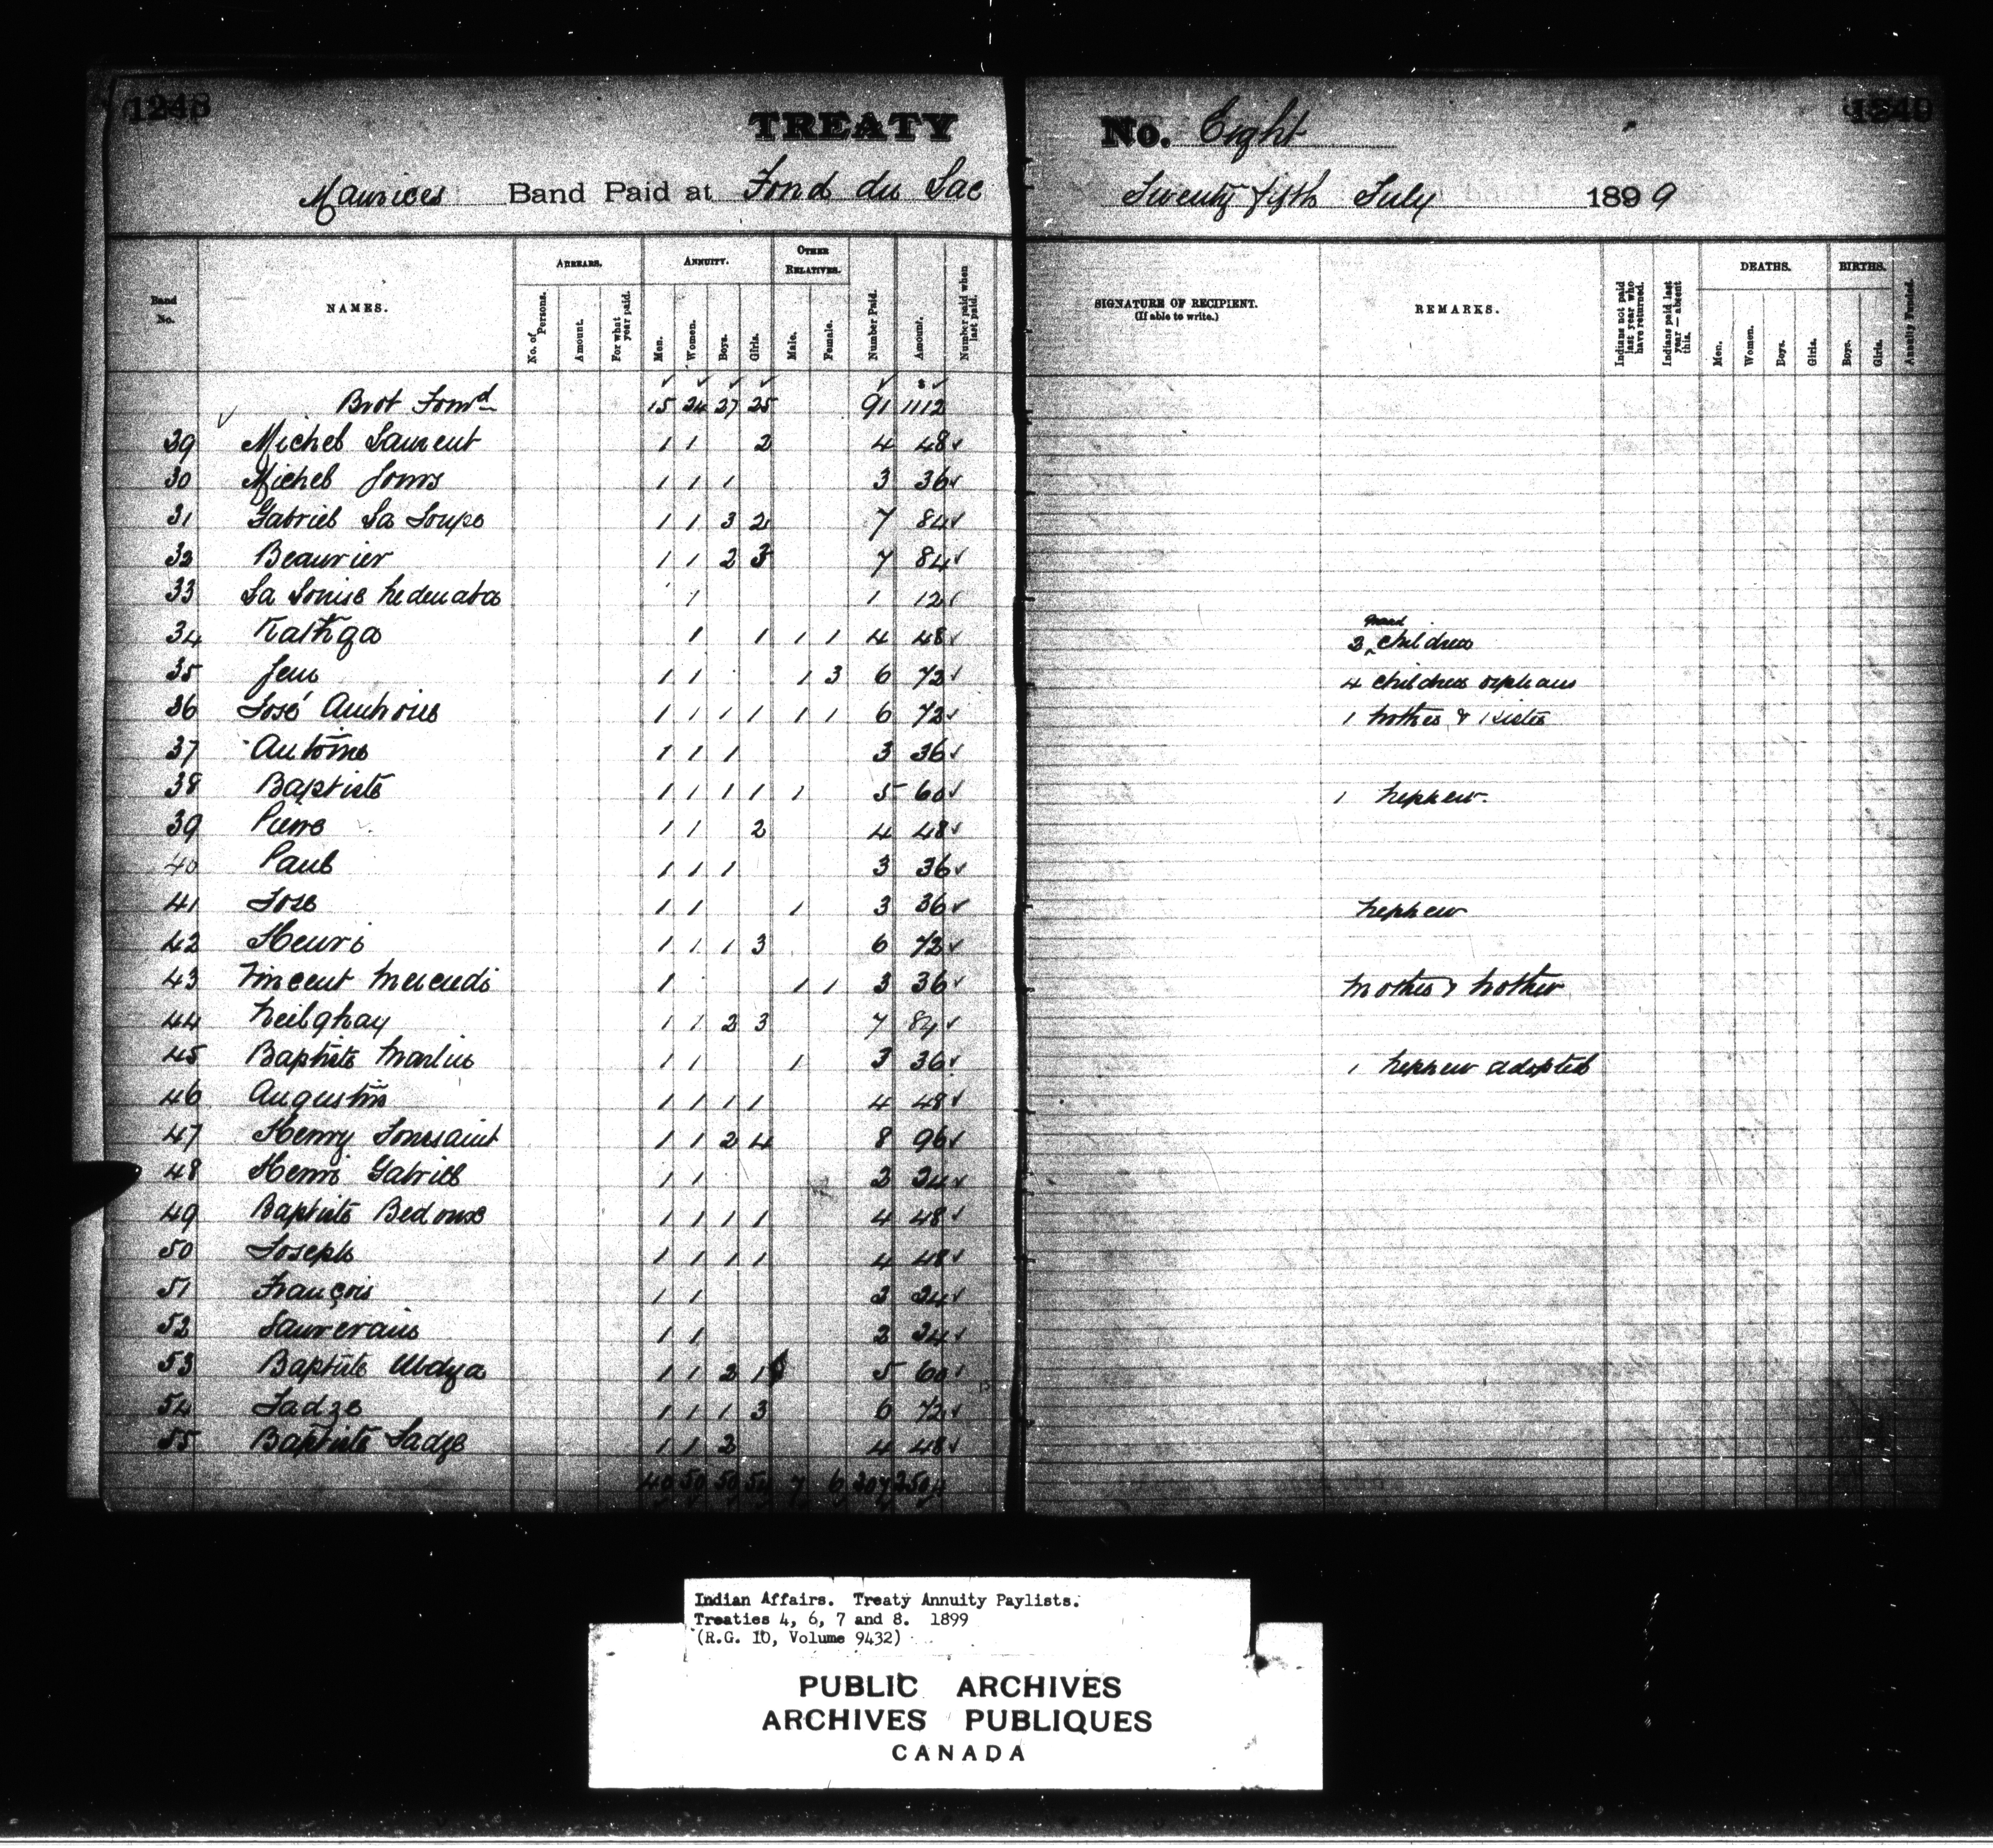 1248
TREATY No. Eight 1249
Maurices Band Paid at Fond du Lac Twenty fifth July 1899
Band No. NAMES. ARREARS. No. of Persons. Amount. For what year paid. ANNUITY. Men. Women. Boys. Girls. OTHER RELATIVES. Male. Female. Number Paid. Amount. Number paid when last paid. SIGNATURE OF RECIPIENT. (If able to write.) REMARKS. Indians not paid last year who have returned. Indians paid last year—absent this. DEATHS. Men. Women. Boys. Girls. BIRTHS. Boys. Girls. Annuity Funded.
Brot Forwd 15 24 27 25 91 1112
29 Michel Laurent 1 1 2 4 48
30 Michel 1 1 1 3 36
31 Gabriel La Loupe 1 1 3 2 7 84
32 Beaurier 1 1 2 3 7 84
33 La Louise 1 1 12
34 Kathga 1 1 1 1 4 48 3 grand children
35 Jeu 1 1 1 3 6 72 4 children orphans
36 José 1 1 1 1 1 1 6 72 1 brother & 1 sister
37 Antoine 1 1 1 3 36
38 Baptiste 1 1 1 1 1 5 60 1 nephew.
39 Pierre 1 1 2 4 48
40 Paul 1 1 1 3 36
41 Jose 1 1 1 3 36 nephew
42 Henri 1 1 1 3 6 72
43 Vincent Mercredi 1 1 1 3 36 mother & brother
44 Neilghay 1 1 2 3 7 84
45 Baptiste Martin 1 1 1 3 36 1 nephew adopted
46 Augustin 1 1 1 1 4 48
47 Henry Toussaint 1 1 2 4 8 96
48 Henri Gabriel 1 1 2 24
49 Baptiste Bedoux 1 1 1 1 4 48
50 Joseph 1 1 1 1 4 48
51 François 1 1 2 24
52 1 1 2 24
53 Baptiste 1 1 2 1 5 60
54 Ladze 1 1 1 3 6 72
55 Baptiste Ladze 1 1 2 4 48
40 50 50 54 7 6 207 2504
Indian Affairs. Treaty Annuity Paylists.
Treaties 4, 6, 7 and 8. 1899
(R.G. 10, Volume 9432)
PUBLIC ARCHIVES
ARCHIVES PUBLIQUES
CANADA